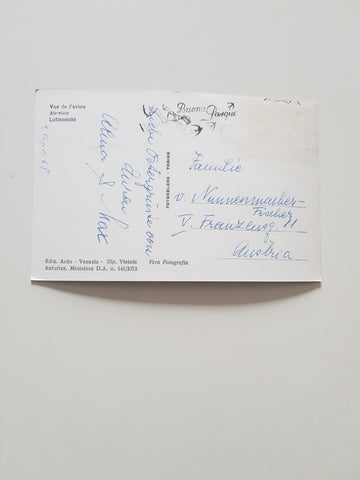 Vue de l'avion
Air-view
Luftansicht
Liebe Ostergrüsse von
Euren
& Max
FOTOCELERE TORINO
Buona
Pasqua
Familie
v. Nunnenmacher-
Fischer
V. Franzensg. 11
Austria
Ediz. Ardo - Venezia - Rip. Vietata
Autorizz. Ministero D.A. n. 141/3372
Vera Fotografia